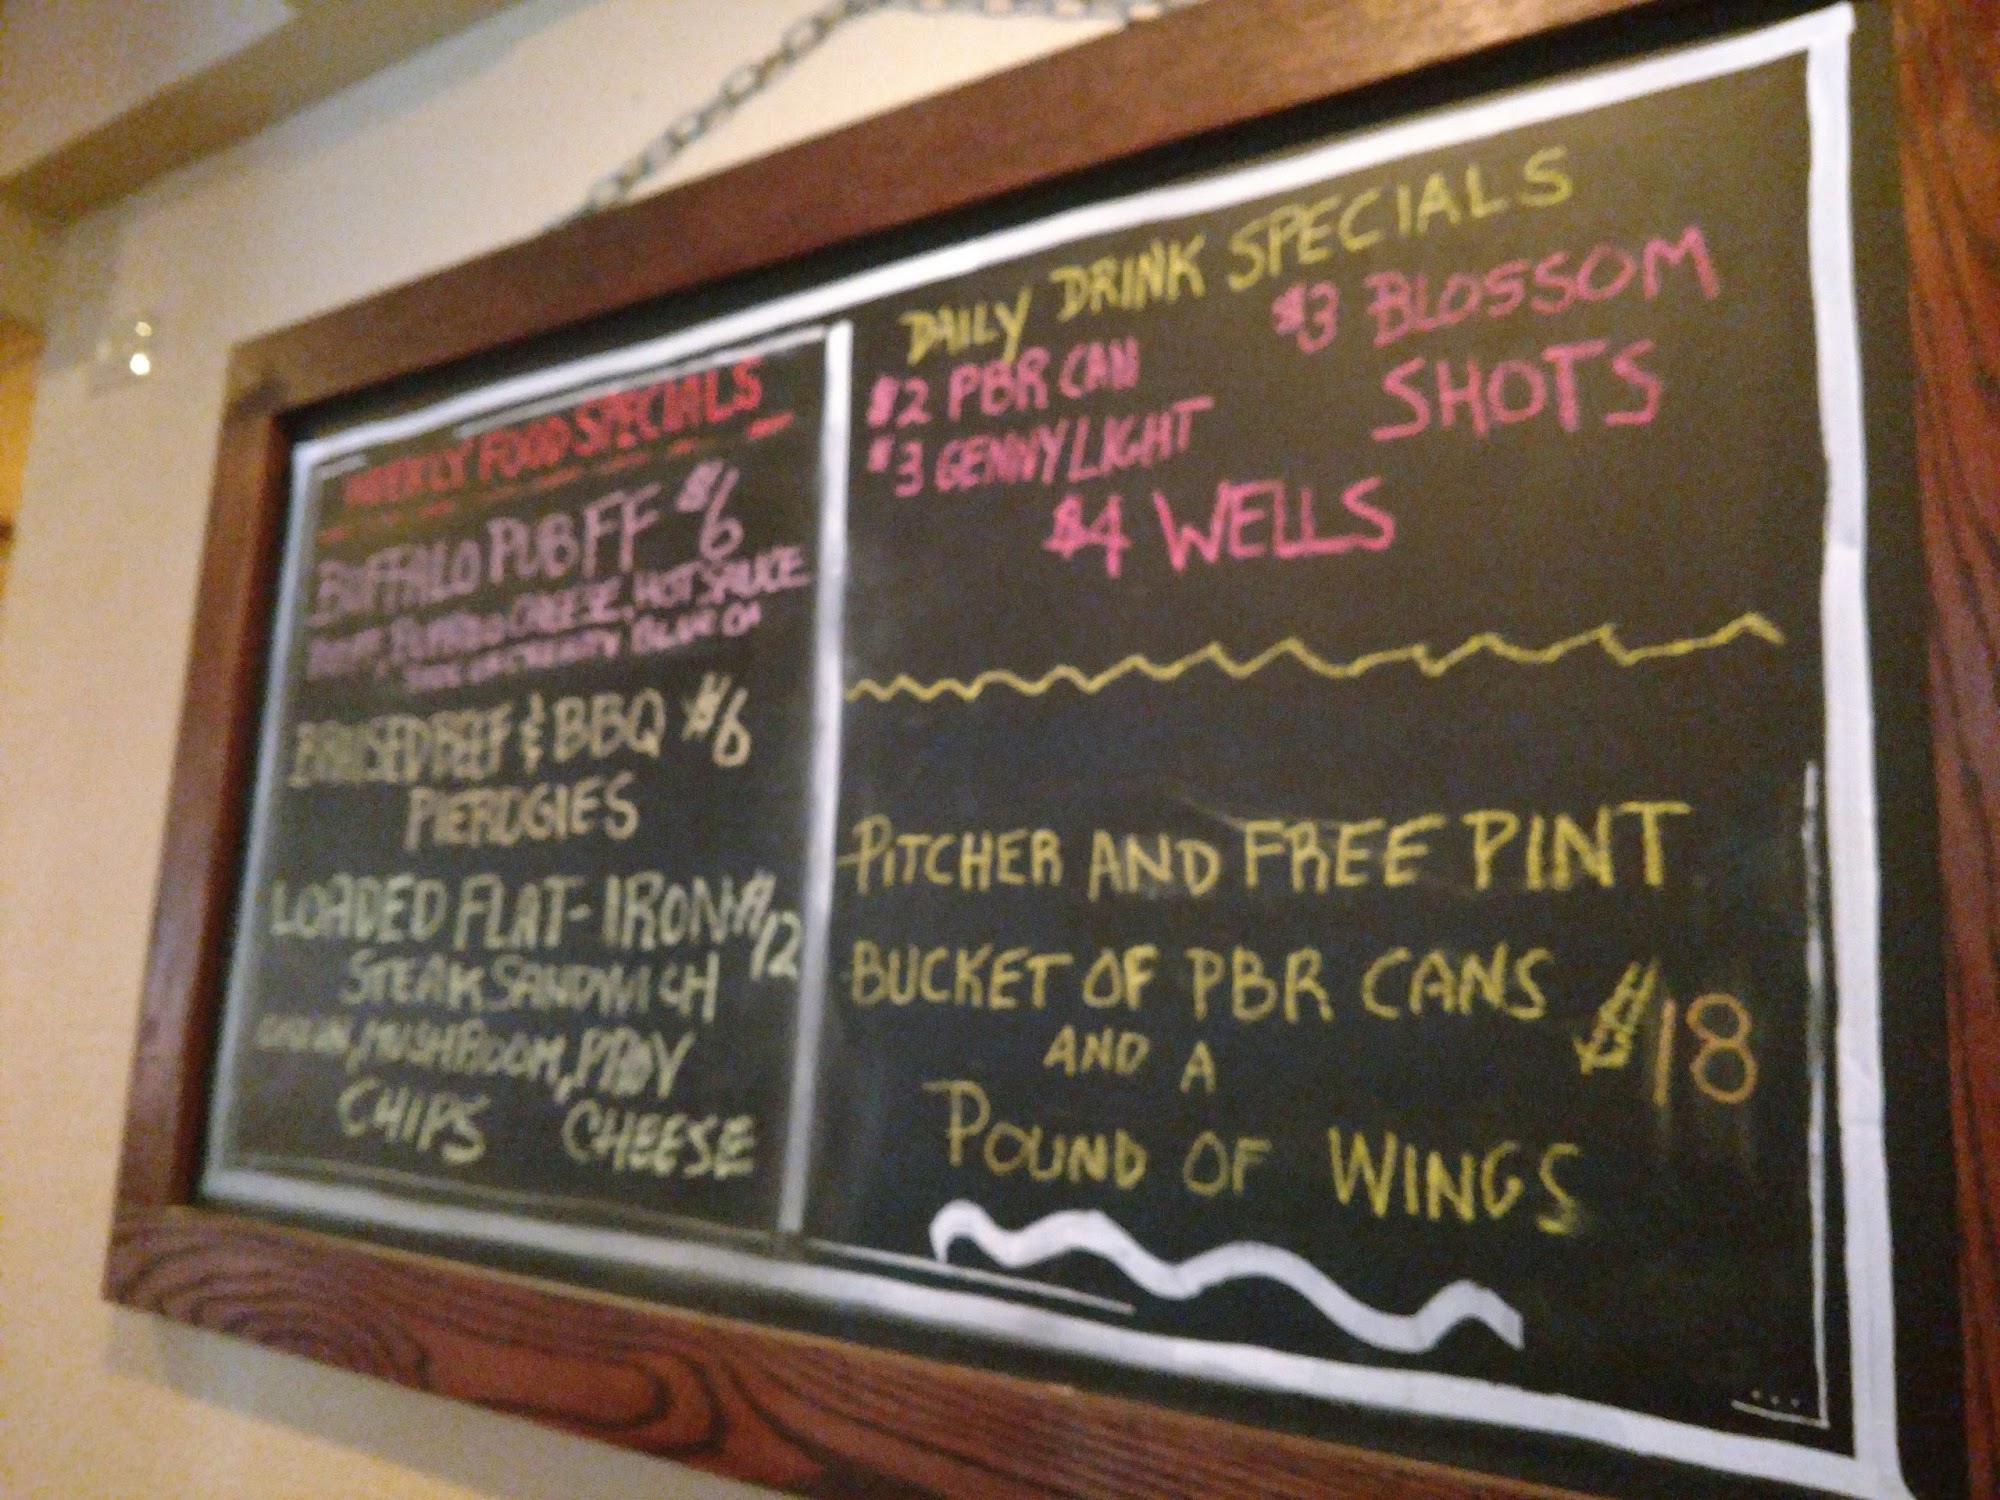 WEEKLY FOOD SPECIALS
BUFFALO PUB FF $6
CHEESE, HOT SAUCE
BRAISED BEEF & BBQ $6
PIEROGIES
LOADED FLAT-IRON $12
STEAK SANDWICH
MUSHROOM, PROV
CHIPS CHEESE
DAILY DRINK SPECIALS
$2 PBR CAN
$3 GENNY LIGHT
$3 BLOSSOM
SHOTS
$4 WELLS
PITCHER AND FREE PINT
BUCKET OF PBR CANS $18
AND A
POUND OF WINGS